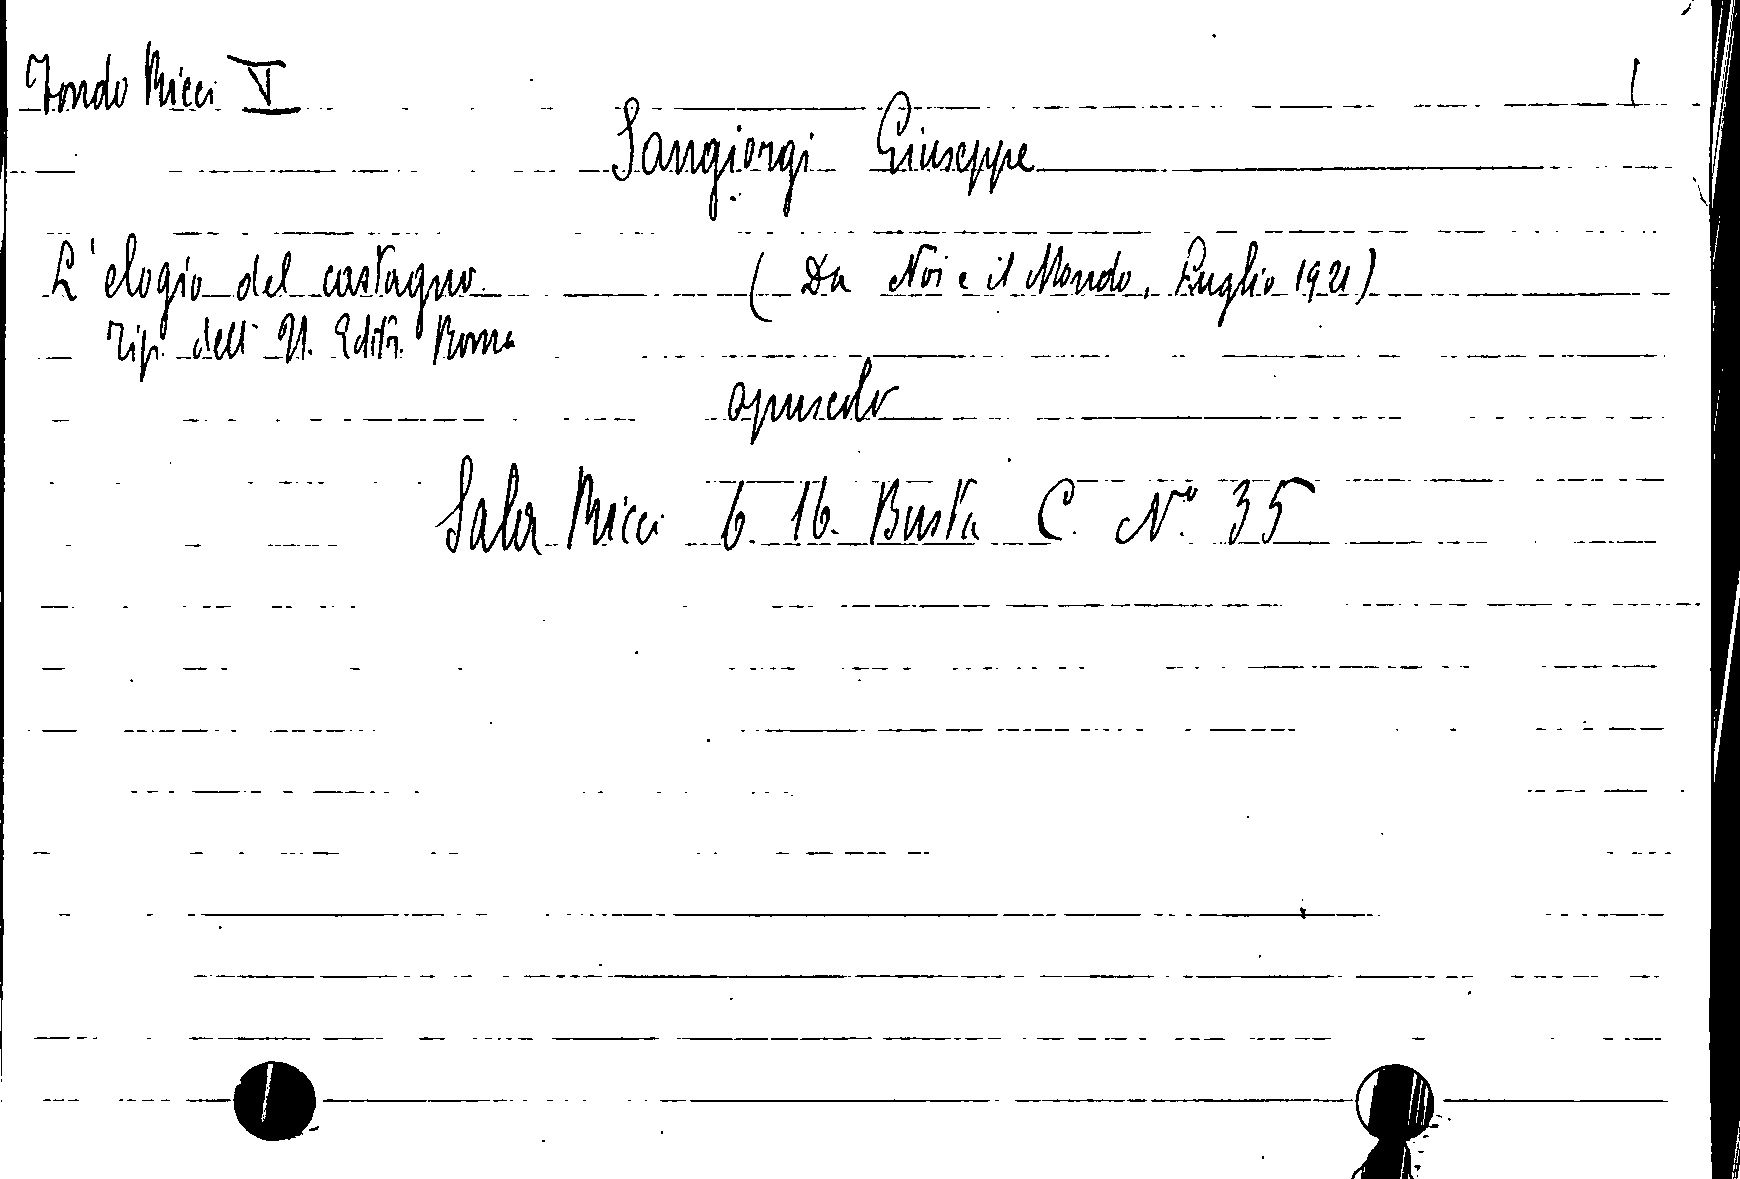 Fondo Ricci V 1
Sangiorgi Giuseppe
L'elogio del castagno. ( Da Noi e il Mondo, Luglio 1921)
Tip. dell' U. Editr. Roma
opuscolo
Sala Ricci 6. 16. Busta C. N° 35